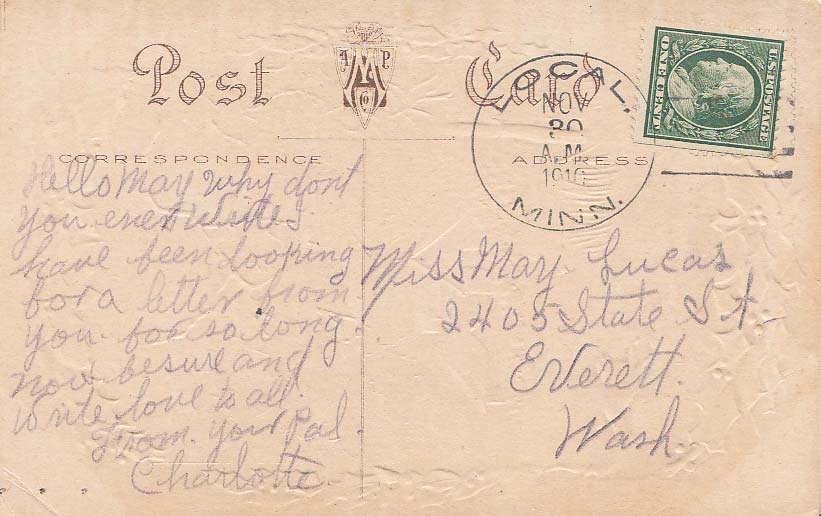 Post Card
A M P Co
CORRESPONDENCE
ADDRESS
LOCAL,
NOV
30
A.M.
1910
MINN.
U.S. POSTAGE
ONE CENT
Hello May Why dont
you ever write I
have been looking
for a letter from
you for so long.
now be sure and
write love to all.
From your Pal.
Charlotte.
Miss May Lucas
2405 State St
Everett.
Wash